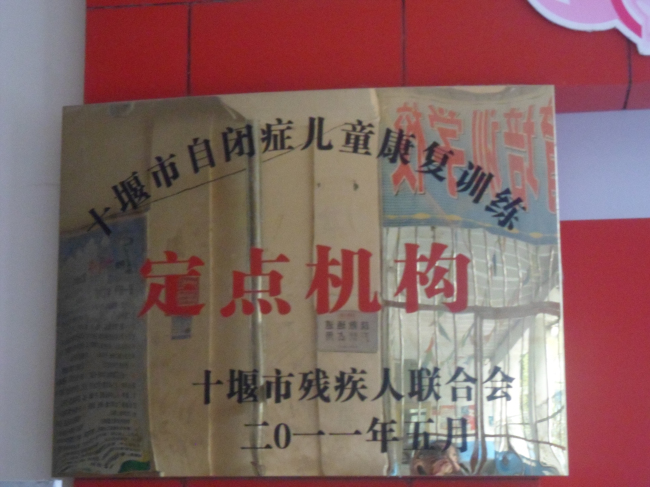 十堰市自闭症儿童康复训练
定点机构
十堰市残疾人联合会
二0一一年五月